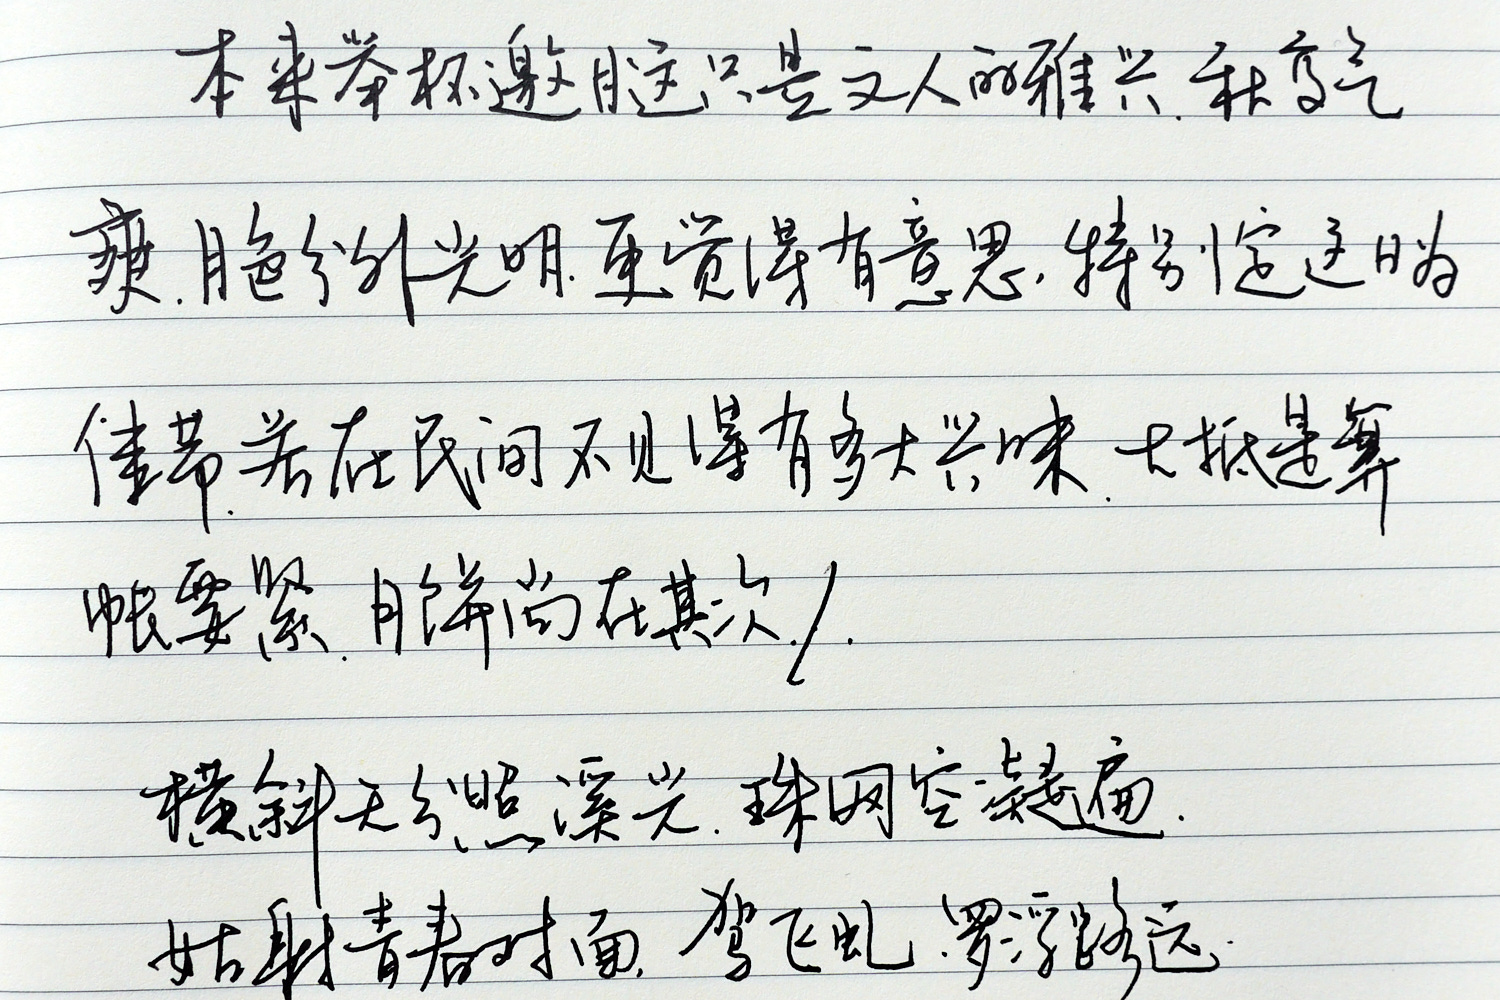 本来举杯邀月这只是文人的雅兴.秋高气
爽.月色分外光明.更觉得有意思.特别定这日为
佳节.若在民间不见得有多大兴味.大抵是算
帐要紧.月饼尚在其次.
横斜无分照溪光.珠网空凝遍.
姑射青春对面.驾飞虬.罗浮路远.